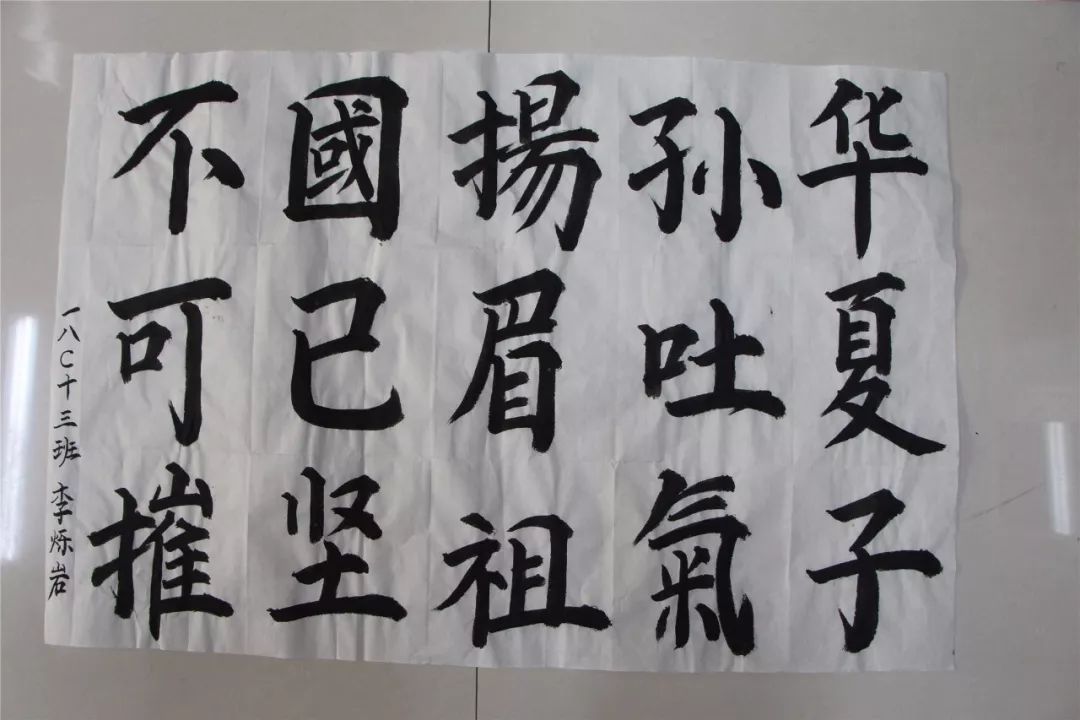 华夏子
孙吐氣
揚眉祖
國已坚
不可摧
一八C十三班 李烁岩